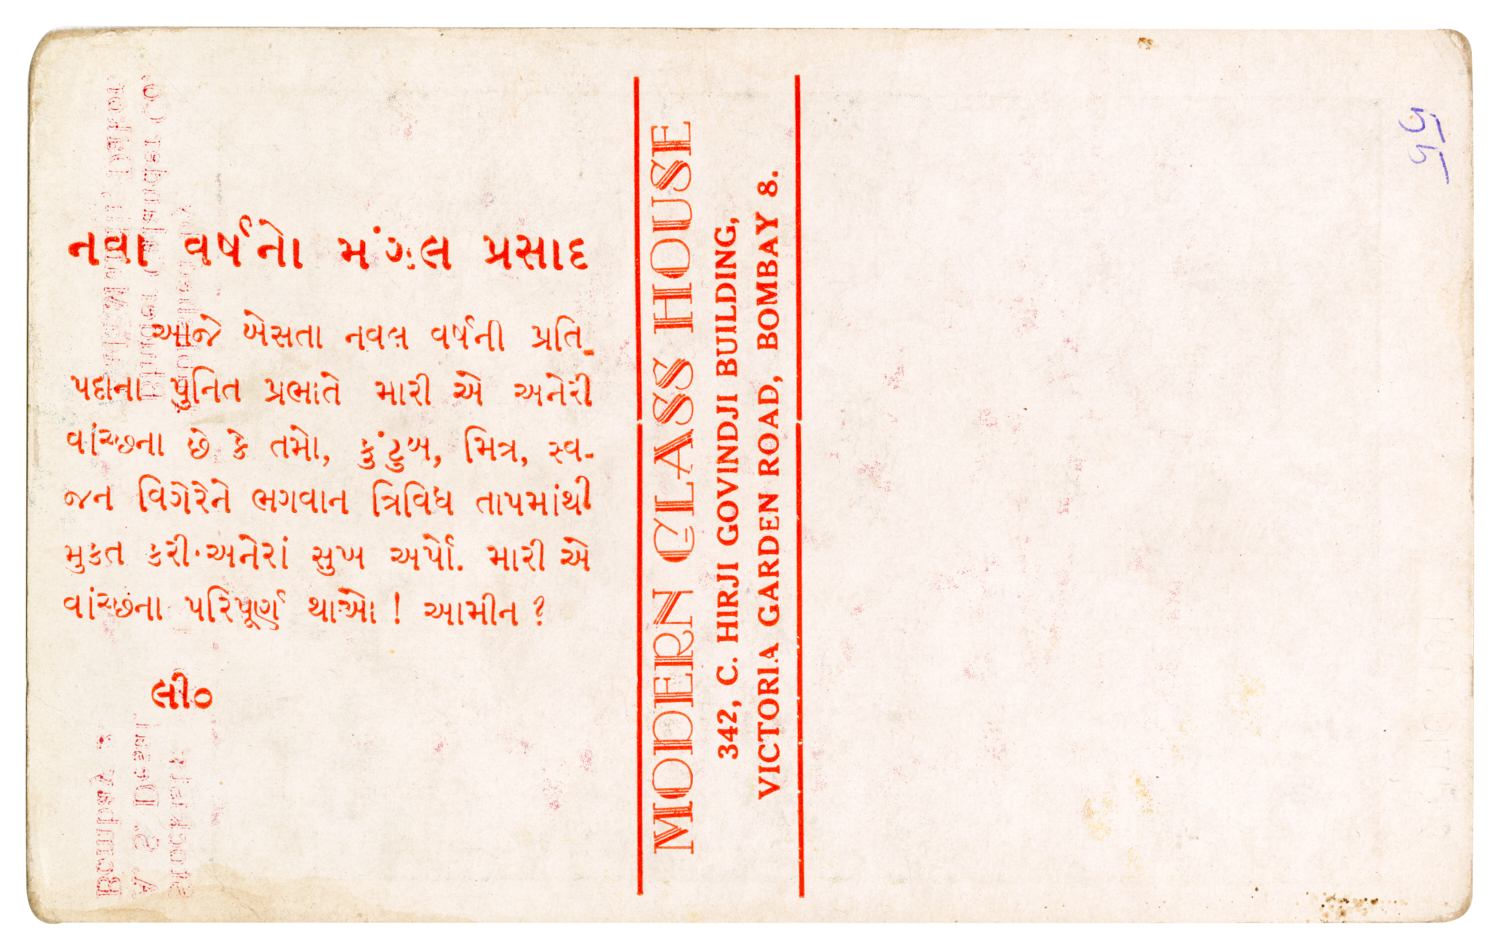 નવા વર્ષનો મંગલ પ્રસાદ
આજે બેસતા નવલ વર્ષની પ્રતિ-
પદાના પુનિત પ્રભાતે મારી એ અનેરી
વાંચ્છના છે કે તમો, કુંટુબ, મિત્ર, સ્વ-
જન વિગેરેને ભગવાન ત્રિવિધ તાપમાંથી
મુકત કરી અનેરાં સુખ અર્પો. મારી એ
વાંચ્છના પરિપૂર્ણ થાઓ ! આમીન ?
લી૦
MODERN GLASS HOUSE
342, C. HIRJI GOVINDJI BUILDING,
VICTORIA GARDEN ROAD, BOMBAY 8.
Bombay :
A. S. Desai